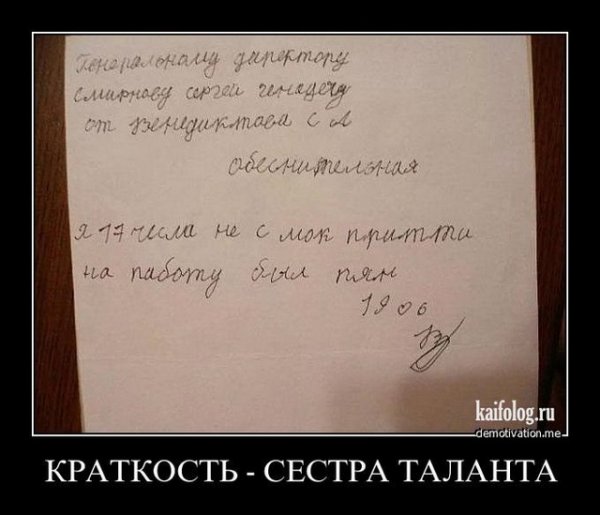 Генеральному директору
Смирнову сергей генадечу
от Венедиктова С А
обеснительная
я 17 числа не с мок притти
на работу был пян
19 06
kaifolog.ru
demotivation.me
КРАТКОСТЬ - СЕСТРА ТАЛАНТА